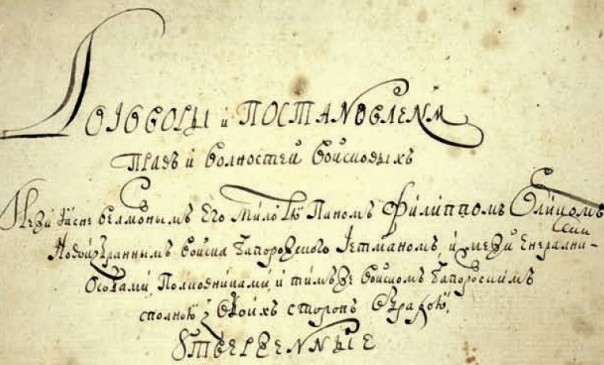 Договоры и Постановленя
Правъ и волностей войсковыхъ
Межи Ясне велможнымъ Его Милостю Паномъ Филиппомъ Орликомъ
Новоизбраннымъ войска Запорожского Гетманомъ, и межи Енерални-
Особами Полковниками и тимъже войскомъ Запорозскимъ
сполною з обоихъ сторонъ обрадою,
Утверженные